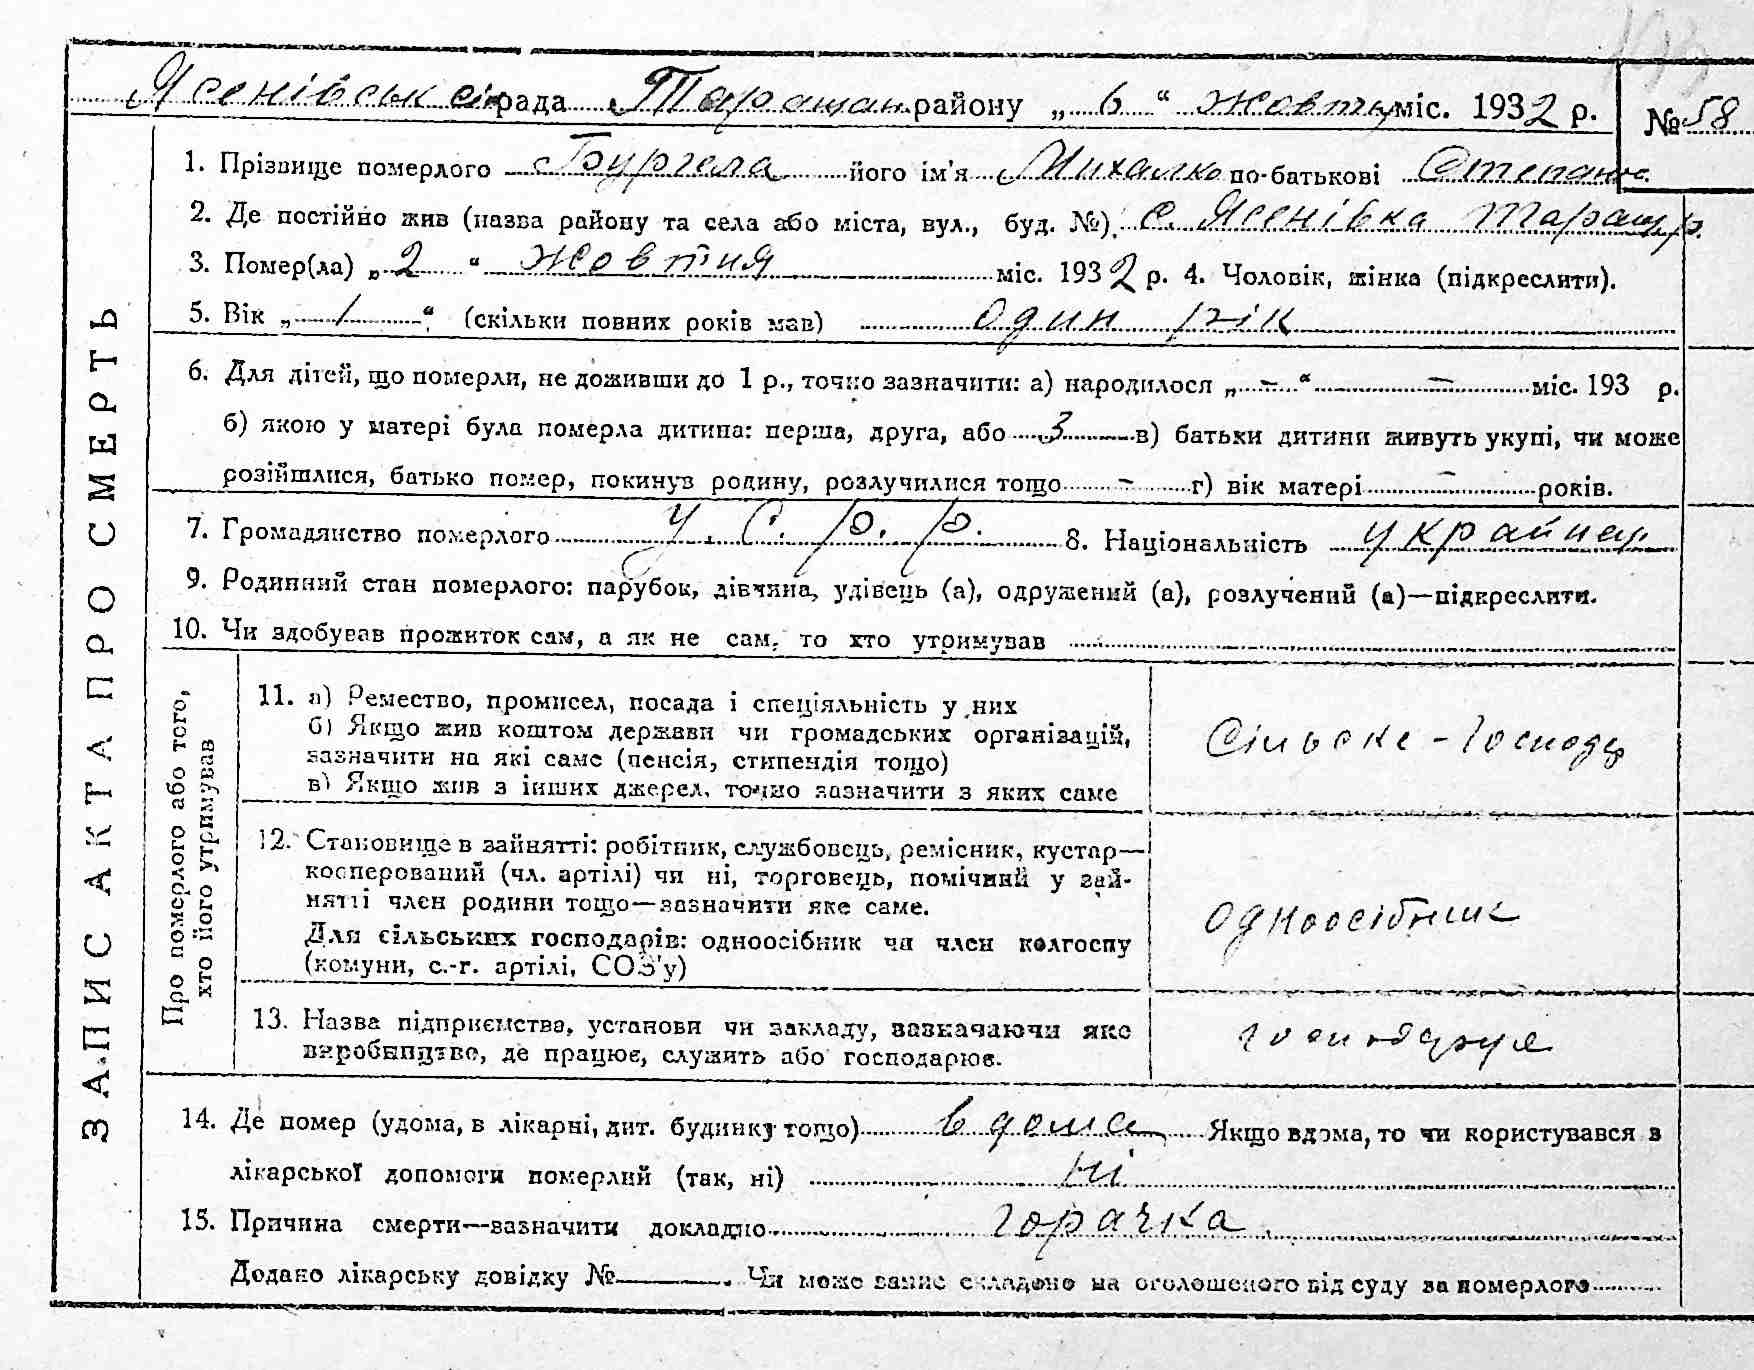 Ясенівськ сільрада Таращан. району „ 6 “ жовтн міс. 1932 р. № 58
1. Прізвище померлого Бургела його ім'я Михалко по-батькові Степанов.
2. Де постійно жив (назва району та села або міста, вул., буд. №). с. Ясенівка Таращ. р.
3. Помер(ла) „ 2 “ жовтня міс. 1932 р. 4. Чоловік, жінка (підкреслити).
5. Вік „ 1 “ (скільки повних років мав) один рік
6. Для дітей, що померли, не доживши до 1 р., точно зазначити: а) народилося „ – “ – міс. 193 р.
б) якою у матері була померла дитина: перша, друга, або 3 в) батьки дитини живуть укупі, чи може
розійшлися, батько помер, покинув родину, розлучилися тощо – г) вік матері – років.
7. Громадянство померлого У. С. Р. Р. 8. Національність українец
9. Родинний стан померлого: парубок, дівчина, удівець (а), одружений (а), розлучений (а)—підкреслити.
10. Чи здобував прожиток сам, а як не сам, то хто утримував
ЗАПИС АКТА ПРО СМЕРТЬ
Про померлого або того,
хто його утримував
11. а) Ремество, промисел, посада і спеціяльність у них
б) Якщо жив коштом держави чи громадських організацій,
зазначити на які саме (пенсія, стипендія тощо)
в) Якщо жив з інших джерел, точно зазначити з яких саме
Сільске-господ
12. Становище в зайнятті: робітник, службовець, ремісник, кустар—
косперований (чл. артілі) чи ні, торговець, помічний у зай-
нятті член родини тощо—зазначити яке саме.
Для сільських господарів: одноосібник чи член колгоспу
(комуни, с.-г. артілі, СОЗ'у)
одноосібник
13. Назва підприємства, установи чи закладу, зазначаючи яке
виробництво, де працює, служить або господарює.
господарує
14. Де помер (удома, в лікарні, дит. будинку тощо) вдома Якщо вдома, то чи користувався з
лікарської допомоги померлий (так, ні) ні
15. Причина смерти—зазначити докладно горачка
Додано лікарську довідку № . Чи може запис складено на оголошеного від суду за померлого